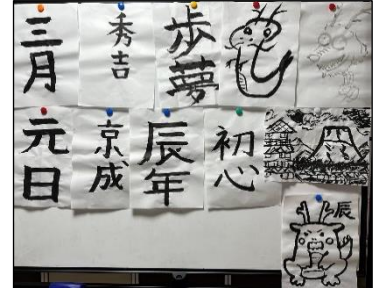 三月
秀吉
歩夢
元日
京成
辰年
初心
辰